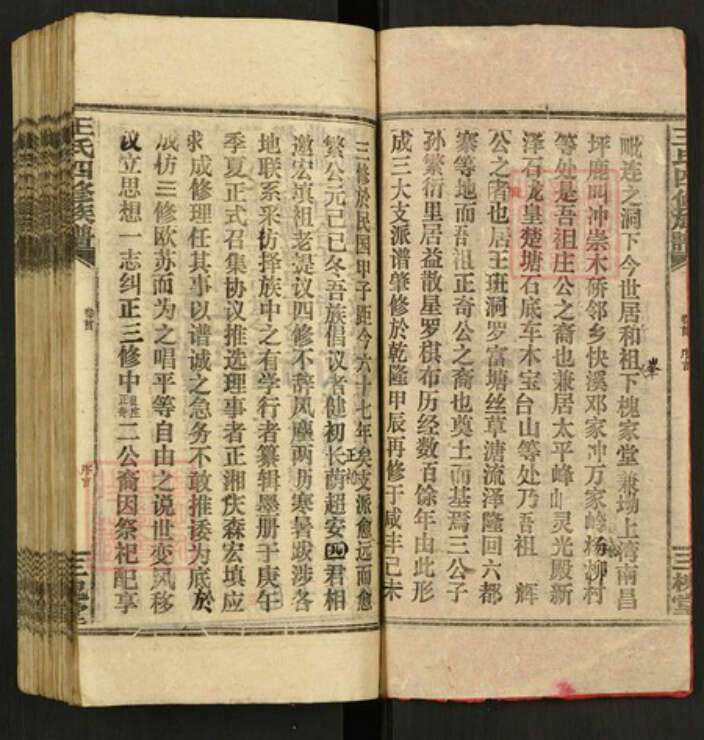 毗连之洞下今世居和祖下槐家堂兼坳上湾南昌
坪鹿叫冲崇木硚邻乡快溪邓家冲万家峰杨柳村
等处是吾祖庄公之裔也兼居太平峰山灵光殿新
泽石珑皇楚塘石底车木宝台山等处乃吾祖 辉
公之裔也居王班洞罗富塘丝草溏流泽隆回六都
寨等地而吾祖正奇公之裔也奠土而基焉三公子
孙繁衍里居益散星罗棋布历经数百馀年由此形
成三大支派谱肇修於乾隆甲辰再修于咸丰己未
三修於民国甲子距今六十七年矣支派愈远而愈
繁公元己巳冬吾族倡议者健初长荫超安四君相
邀宏填祖老提议四修不辞风尘两历寒暑跋涉各
地联系采访择族中之有学行者纂辑墨册于庚午
季夏正式召集协议推选理事者正湘庆森宏填应
求成修理任其事以谱诚之急务不敢推诿为底於
成仿三修欧苏而为之唱平等自由之说世变风移
议立思想一志纠正三修中二公裔因祭祀配享
王氏四修族谱
卷首
序言
三槐堂
王氏四修族谱
卷首 序言
三槐堂